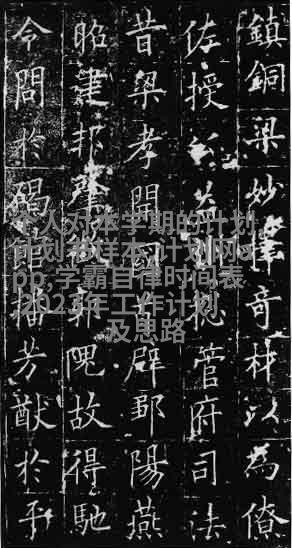 鎮銅梁妙擇奇材以為僚
佐授公益州總管府司法
昔梁孝開國首辟鄒陽燕
昭建邦肇郭隗故得馳
令問於碣館播芳猷於平
个人对本学期的计划
计划书样本,计划网a
pp,学霸自律时间表
,2023年工作计划
及思路